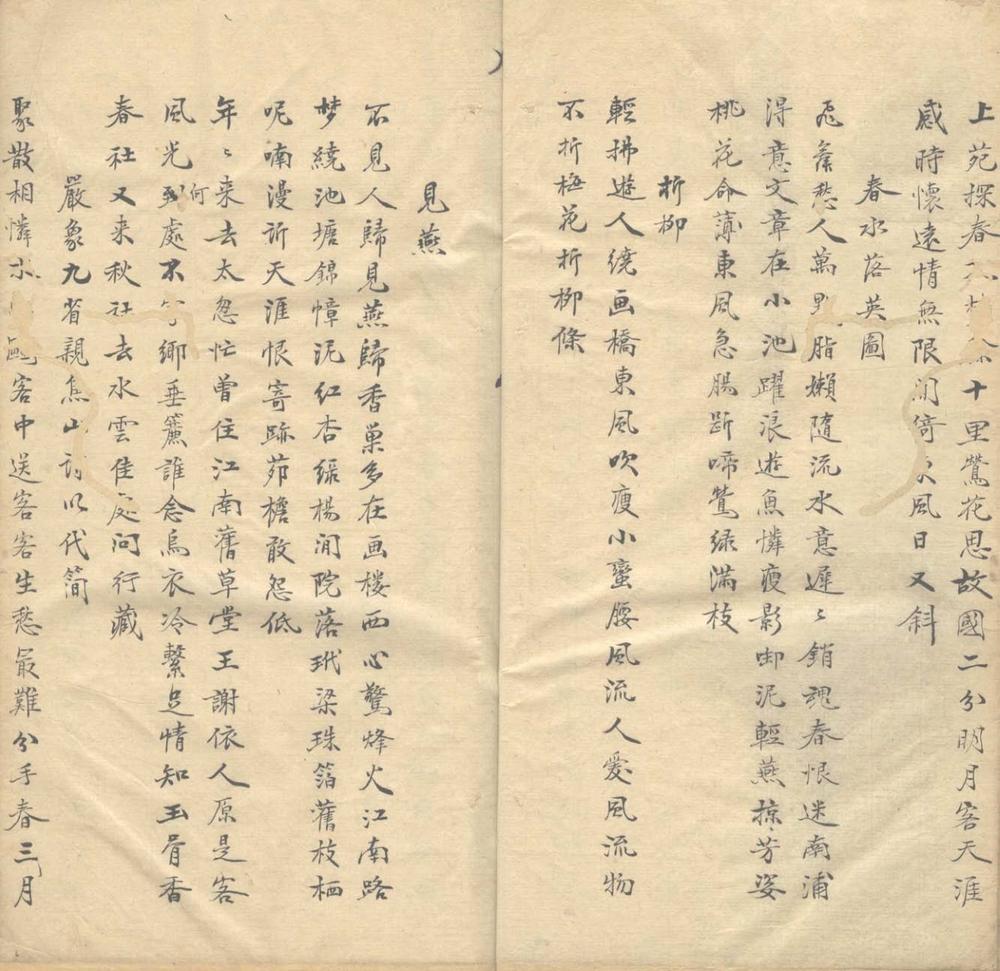 上苑探春十里鶯花思故國二分明月客天涯
感時懷遠情無限閒倚風日又斜
春水落英圖
愁人萬點脂嬾隨流水意遲〻銷魂春恨迷南浦
得意文章在小池躍浪遊魚憐瘦影啣泥輕燕掠芳姿
桃花命薄東風急腸斷啼鶯綠滿枝
折柳
輕拂遊人繞画橋東風吹瘦小蠻腰風流人愛風流物
不折梅花折柳條
見燕
不見人歸見燕歸香巢多在画楼西心驚烽火江南路
梦繞池塘錦幛泥紅杏綠楊閒院落玳梁珠箔舊枝栖
呢喃漫訴天涯恨寄跡茆檐敢怨低
年〻来去太怱忙曾住江南舊草堂王謝依人原是客
風光到處何鄉垂簾誰念烏衣冷繫足情知玉骨香
春社又来秋社去水雲佳處問行藏
嚴象九省親烏山詩以代簡
聚散相憐客中送客客生愁最難分手春三月